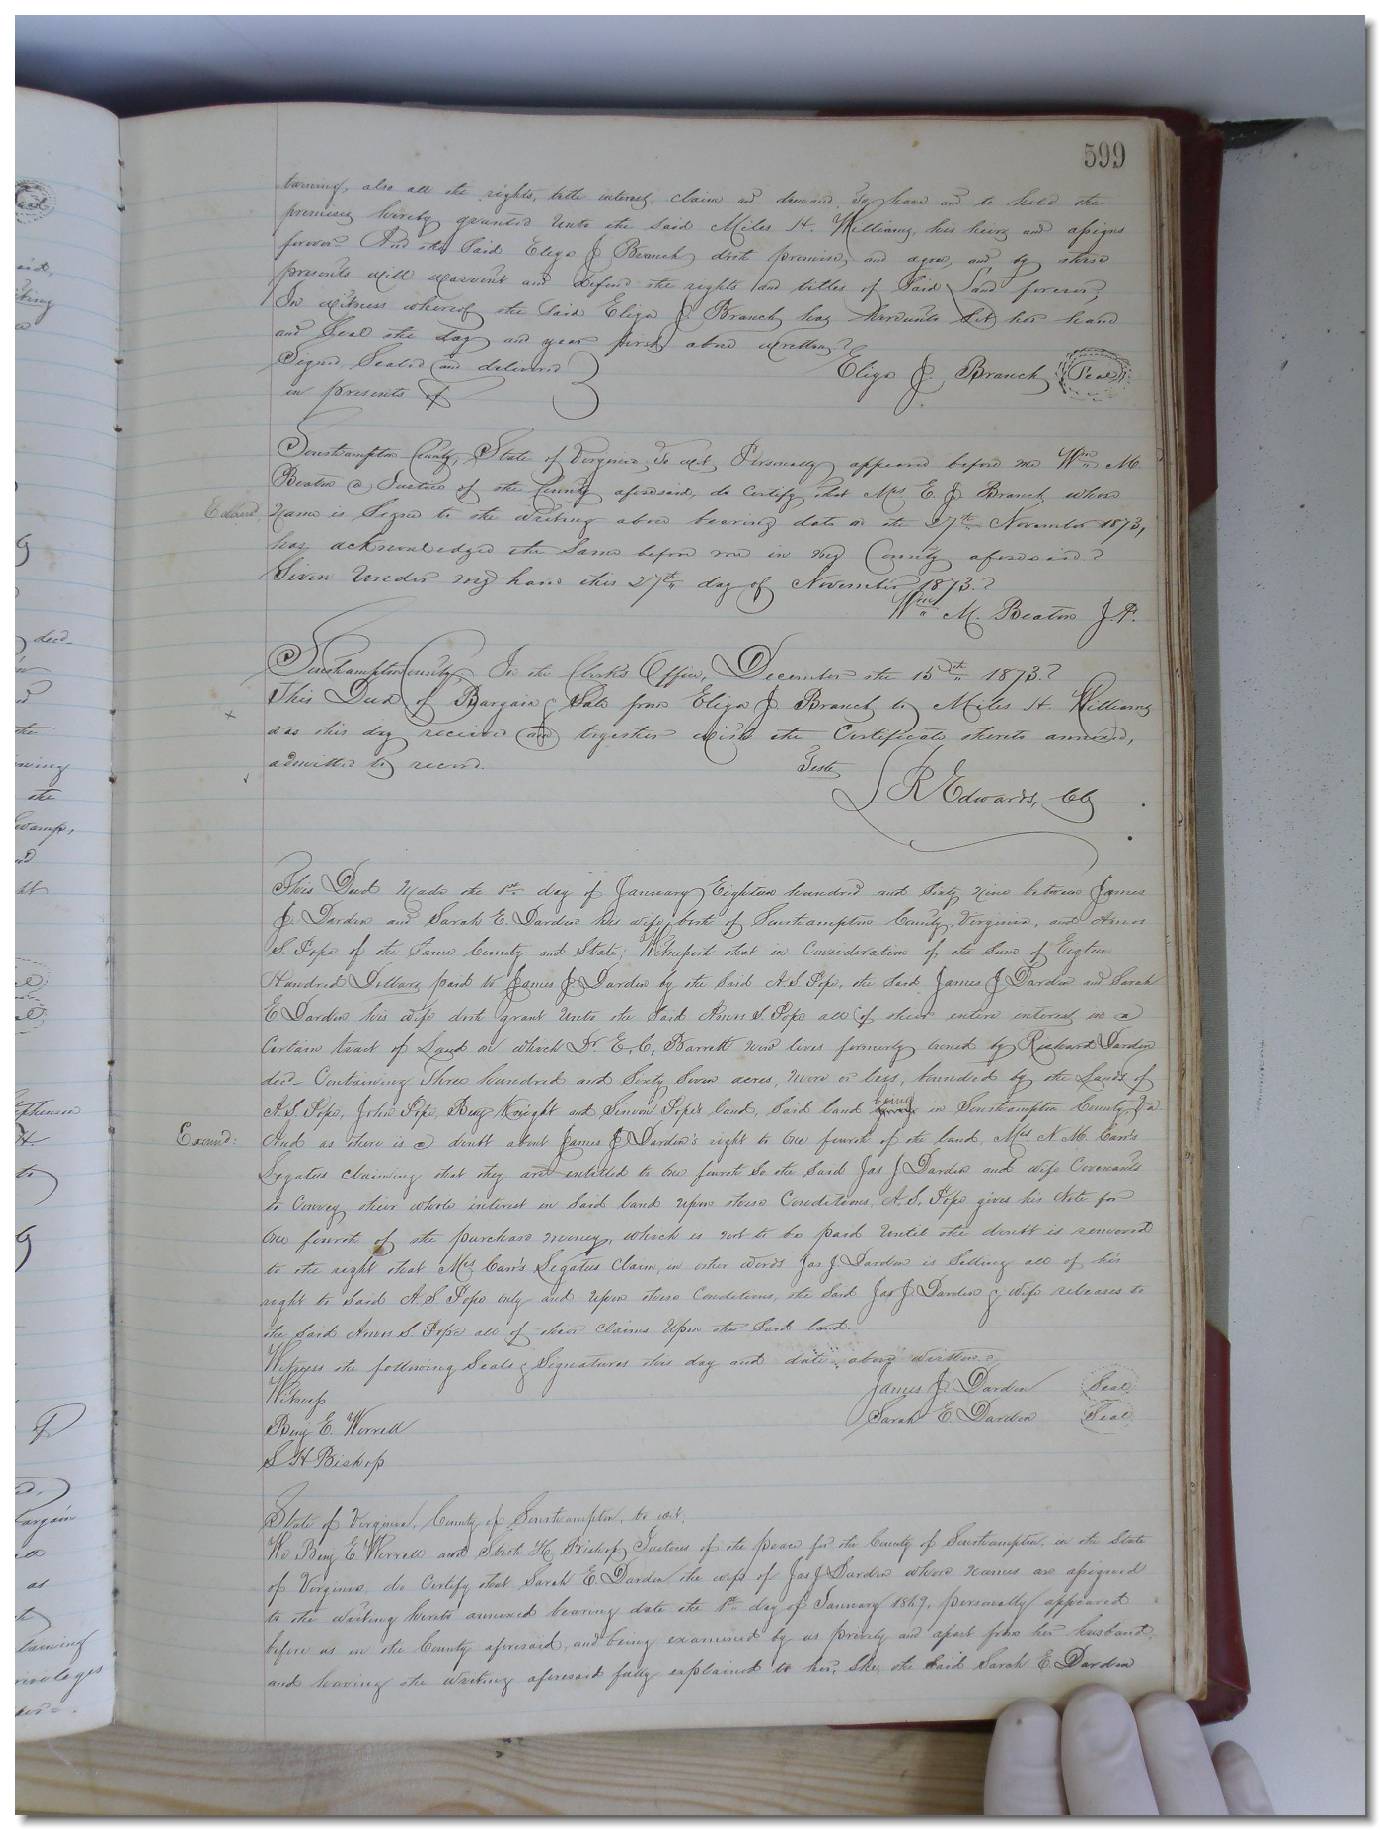 599
taining, also all the rights, title interest, claim and demand, To have and to hold the
premises hereby granted Unto the said Miles H. Williams, his heirs and assigns
forever And the Said Eliza J Branch doth promise, and agree, and by these
presents will warrant and defend the rights and titles of Said Land forever,
In witness whereof the Said Eliza J Branch has hereunto Set her hand
and Seal the day and year first above written
Signed, Sealed and delivered
in presents of
Eliza J. Branch Seal
Southampton County, State of Virginia, To wit, Personally appeared before me Wm M.
Beaton a Justice of the County aforesaid, do Certify that Mrs E. J Branch whose
name is Signed to the writing above bearing date on the 27th November 1873,
has acknowledged the Same before me in my County aforesaid
Given Under my hand this 27th day of November 1873.
Wm M. Beaton J.P.
Southampton County In the Clerk's Office, December the 15th 1873.
This Deed of Bargain & Sale from Eliza J Branch to Miles H. Williams
was this day received and together with the Certificate thereto annexed,
admitted to record.
Teste
L R Edwards, Clk
This Deed Made the 1st day of January Eighteen hundred and Sixty Nine between James
J Darden and Sarah E. Darden his wife, both of Southampton County, Virginia, and Amos
S. Pope of the Same County and State; Witnesseth that in Consideration of the Sum of Eighteen
Hundred Dollars paid to James J Darden by the Said A. S. Pope, the Said James J Darden and Sarah
E Darden his wife doth grant Unto the Said Amos S. Pope all of their entire interest in a
Certain tract of Land on which Dr. E. C. Barrett now lives formerly owned by Richard Darden
decd- Containing Three hundred and Sixty Seven acres, more or less, bounded by the Lands of
A. S. Pope, John Pope, Benj Knight and Simon Pope's land, Said land being in Southampton County, Va
Examd:
And as there is a doubt about James J Darden's right to One fourth of the land, Mrs N. M. Carr's
Legatees claiming that they are entitled to One fourth So the Said Jas J Darden and wife Covenants
to Convey their whole interest in Said land Upon these Conditions, A. S. Pope gives his Note for
One fourth of the purchase money, which is not to be paid Until the doubt is removed
to the right that Mrs Carr's Legatees Claim, in other words Jas J Darden is Selling all of his
right to Said A. S Pope only and Upon these Conditions, the Said Jas J Darden & Wife releases to
the Said Amos S Pope all of their claims Upon the Said land.
Witness the following Seals & Signatures this day and date above written
Witness
James J. Darden Seal
Sarah E Darden Seal
Benj E. Worrell
S H Bishop
State of Virginia, County of Southampton, to wit,
We Benj E Worrell and H. Bishop, Justices of the peace for the County of Southampton, in the State
of Virginia, do Certify that Sarah E. Darden the wife of Jas J Darden whose names are assigned
to the Writing hereto annexed bearing date the 1st day of January 1869, personally appeared
before us in the County aforesaid, and being examined by us privily and apart from her husband,
and having the writing aforesaid fully explained to her, She, the Said Sarah E Darden